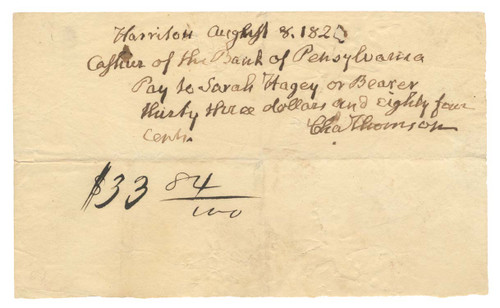 Harriton August 8. 182
Cashier of the Bank of Pennsylvania
Pay to Sarah Hagey or Bearer
thirty three dollars and eighty four
cents.
Cha Thomson
$33 84/100